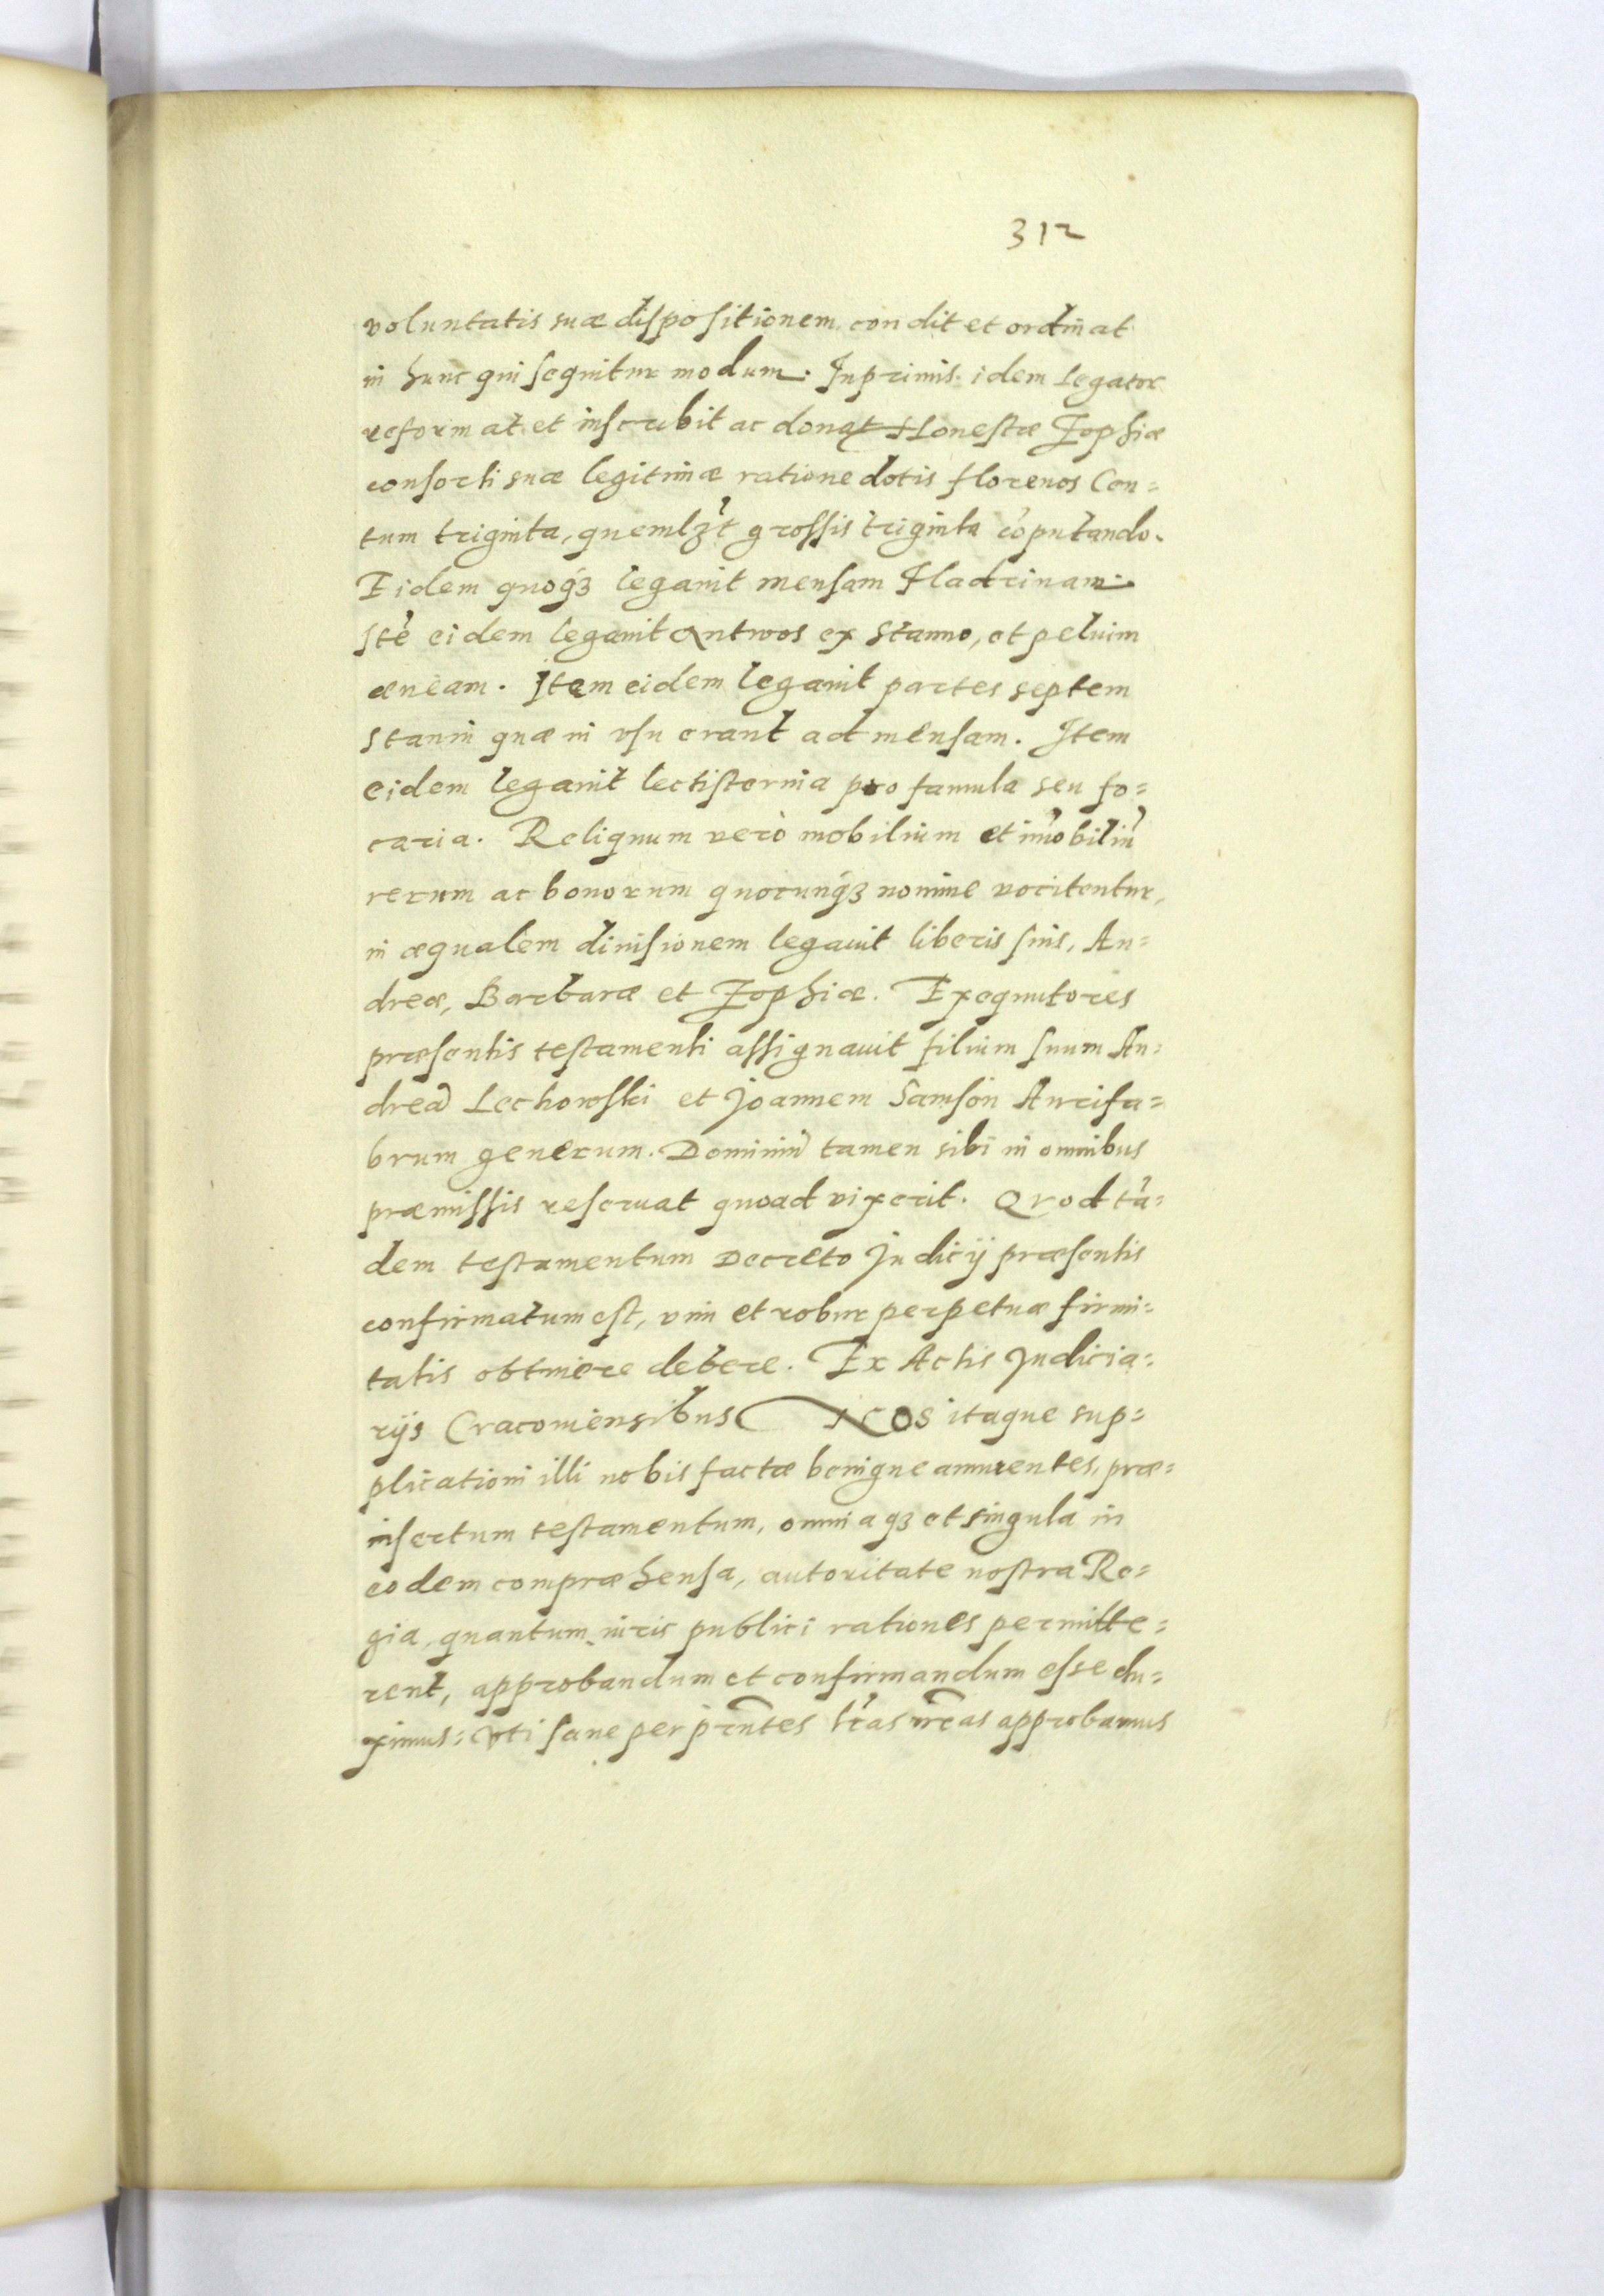 312
voluntatis suæ dispositionem condit et ordinat
in hunc qui sequitur modum. Inprimis idem legator
reformat et inscribit ac donat Honestæ Zophiæ
consorti suæ legitimæ ratione dotis florenos Cen=
tum triginta, quemlʒt grossis triginta cõputando.
Eidem quoqʒ legauit mensam Hadrinam.
Itẽ eidem legauit Antwos ex Stanno, et peluim
æneam. Item eidem legauit partes septem
stanni quæ in vsu erant ad mensam. Item
eidem legauit lectisternia pro famula seu fo=
caria. Reliquum verò mobilium et im̃obiliũ
rerum ac bonorum quocunqʒ nomine vocitentur,
in æqualem diuisionem legauit liberis suis, An=
dreæ, Barbaræ et Zophiæ. Exequutores
præsentis testamenti assignauit filium suum An=
dreã Lechowski et Joannem Samson Aurifa=
brum generum. Dominiũ tamen sibi in omnibus
præmissis reseruat quoad vixerit. Quod tã=
dem testamentum Decreto Judicij præsentis
confirmatum est, vim et robur perpetuæ firmi=
tatis obtinere debere. Ex Actis Judicia=
rijs Cracouiensibus Nos itaque sup=
plicationi illi nobis factæ benigne annuentes, præ=
insertum testamentum, omniaqʒ et singula in
eodem compræhensa, autoritate nostra Re=
gia, quantum iuris publici rationes permitte=
rent, approbandum et confirmandum esse du=
ximus: Vti sane per pñtes lr̃as nr̃as approbamus